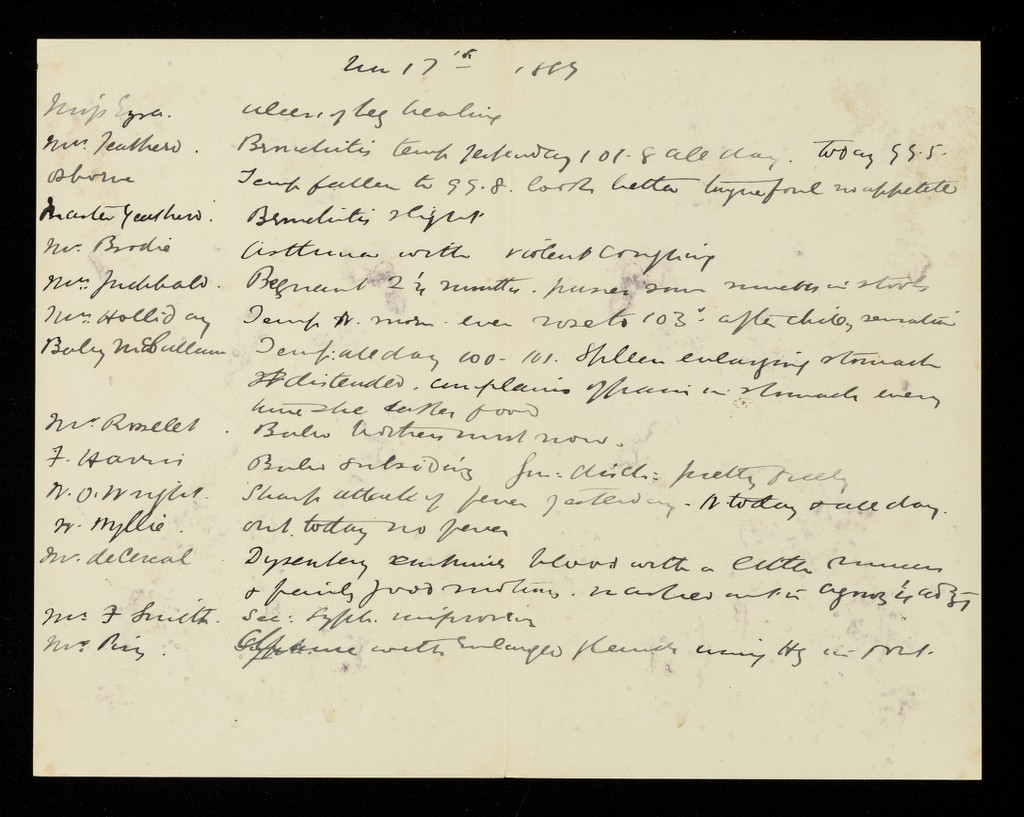 17th
Miss Ezra. ulcer of leg healing
Mrs Feathers. Bronchitis temp yesterday 101.8 all day. today 99.5.
Osborne Temp fallen to 99.8. looks better tongue foul no appetite
Master Feathers. Bronchitis slight
Mr. Brodie Asthma with violent coughing
Mrs Judibald. Pregnant 2¼ months. passes some mucus in stools
Mrs. Holliday Temp N. morn. even rose to 103° after chilly sensation
Baby McCallum Temp: all day 100-101. Spleen enlarging stomach
distended. complains of pain in stomach every
time she takes food
Mr. Rosselet. Bubo
F. Harris Bubo subsiding disch: pretty freely
W. O. Wright. Sharp attack of fever yesterday. N today & all day.
W. Wyllie. out today no fever
Mr. de Cereal Dysentery continues blood with a little mucus
& fairly good motions. washed out
Mr F Smith. Sec: Syph. improving
Mr. with enlarged glands using Hg in